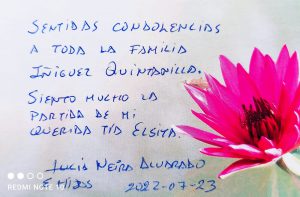 SENTIDAS CONDOLENCIAS
A TODA LA FAMILIA
IÑIGUEZ QUINTANILLA.
SIENTO MUCHO LA
PARTIDA DE MI
QUERIDA TÍA ELSITA.
LUCIA NEIRA ALVARADO
E HIJOS 2022-07-23
REDMI NOTE